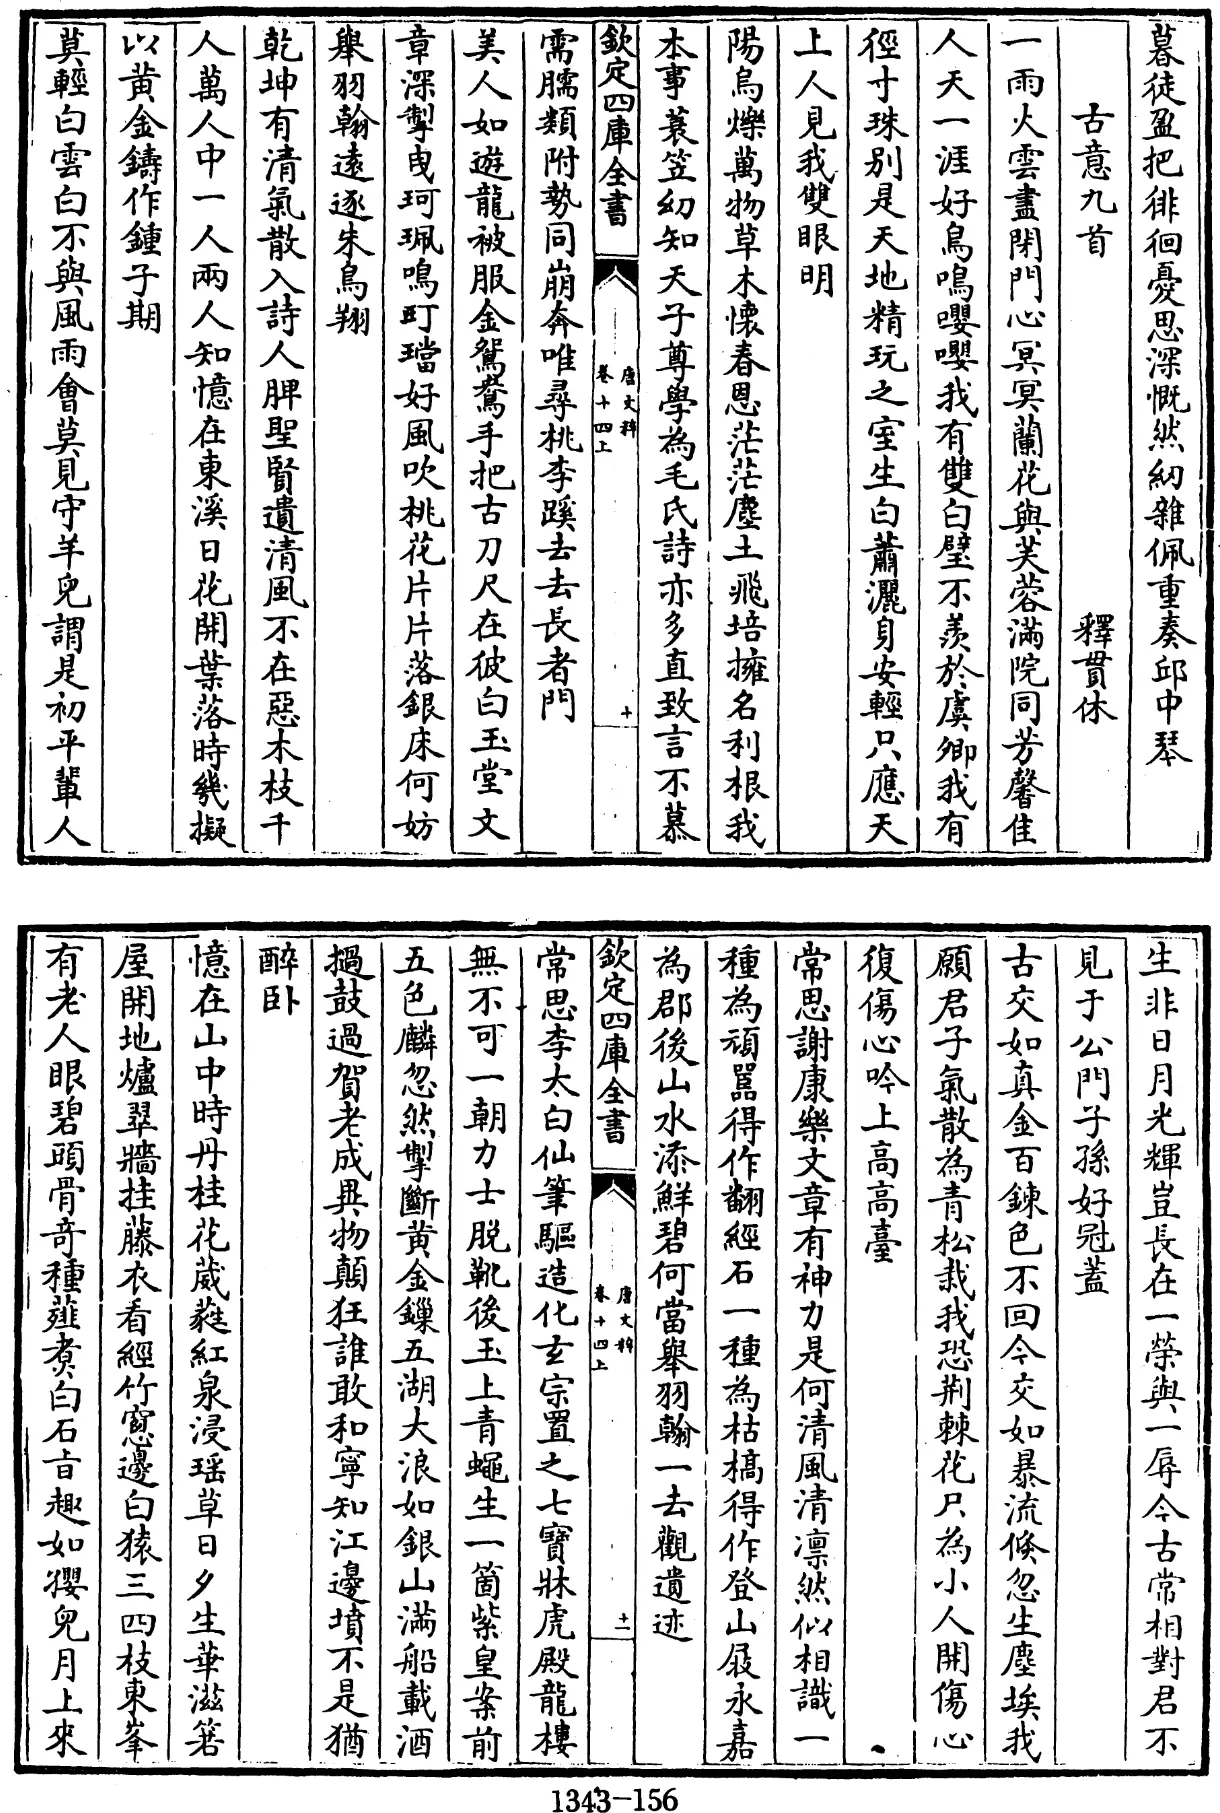 暮徒盈把徘徊憂思深慨然紉雜佩重奏邱中琴
古意九首 釋貫休
一雨火雲盡閉門心冥冥蘭花與芙蓉滿院同芳馨佳
人天一涯好鳥鳴嚶嚶我有雙白璧不羡於虞卿我有
徑寸珠別是天地精玩之室生白蕭灑身安輕只應天
上人見我雙眼明
陽烏爍萬物草木懷春恩茫茫塵土飛培擁名利根我
本事蓑笠幼知天子尊學為毛氏詩亦多直致言不慕
欽定四庫全書 唐文粹 卷十四上 十
需臑類附勢同崩奔唯尋桃李蹊去去長者門
美人如遊龍被服金鴛鴦手把古刀尺在彼白玉堂文
章深掣曳珂珮鳴玎璫好風吹桃花片片落銀床何妨
舉羽翰遠逐朱鳥翔
乾坤有清氣散入詩人脾聖賢遺清風不在惡木枝千
人萬人中一人兩人知憶在東溪日花開葉落時幾擬
以黃金鑄作鍾子期
莫輕白雲白不與風雨會莫見守羊兒謂是初平輩人
生非日月光輝豈長在一榮與一辱今古常相對君不
見于公門子孫好冠蓋
古交如真金百鍊色不回今交如暴流倏忽生塵埃我
願君子氣散為青松栽我恐荆棘花只為小人開傷心
復傷心吟上高高臺
常思謝康樂文章有神力是何清風清凛然似相識一
種為頑嚚得作翻經石一種為枯槁得作登山屐永嘉
為郡後山水添鮮碧何當舉羽翰一去觀遺迹
欽定四庫全書 唐文粹 卷十四上 十一
常思李太白仙筆驅造化玄宗置之七寶牀虎殿龍樓
無不可一朝力士脫靴後玉上青蠅生一箇紫皇案前
五色麟忽然掣斷黃金鏁五湖大浪如銀山滿船載酒
撾鼓過賀老成異物顛狂誰敢和寧知江邊墳不是猶
醉卧
憶在山中時丹桂花葳蕤紅泉浸瑤草日夕生華滋箬
屋開地爐翠牆挂藤衣看經竹窻邊白猿三四枝東峯
有老人眼碧頭骨奇種薤煑白石㫖趣如嬰兒月上來
1343-156